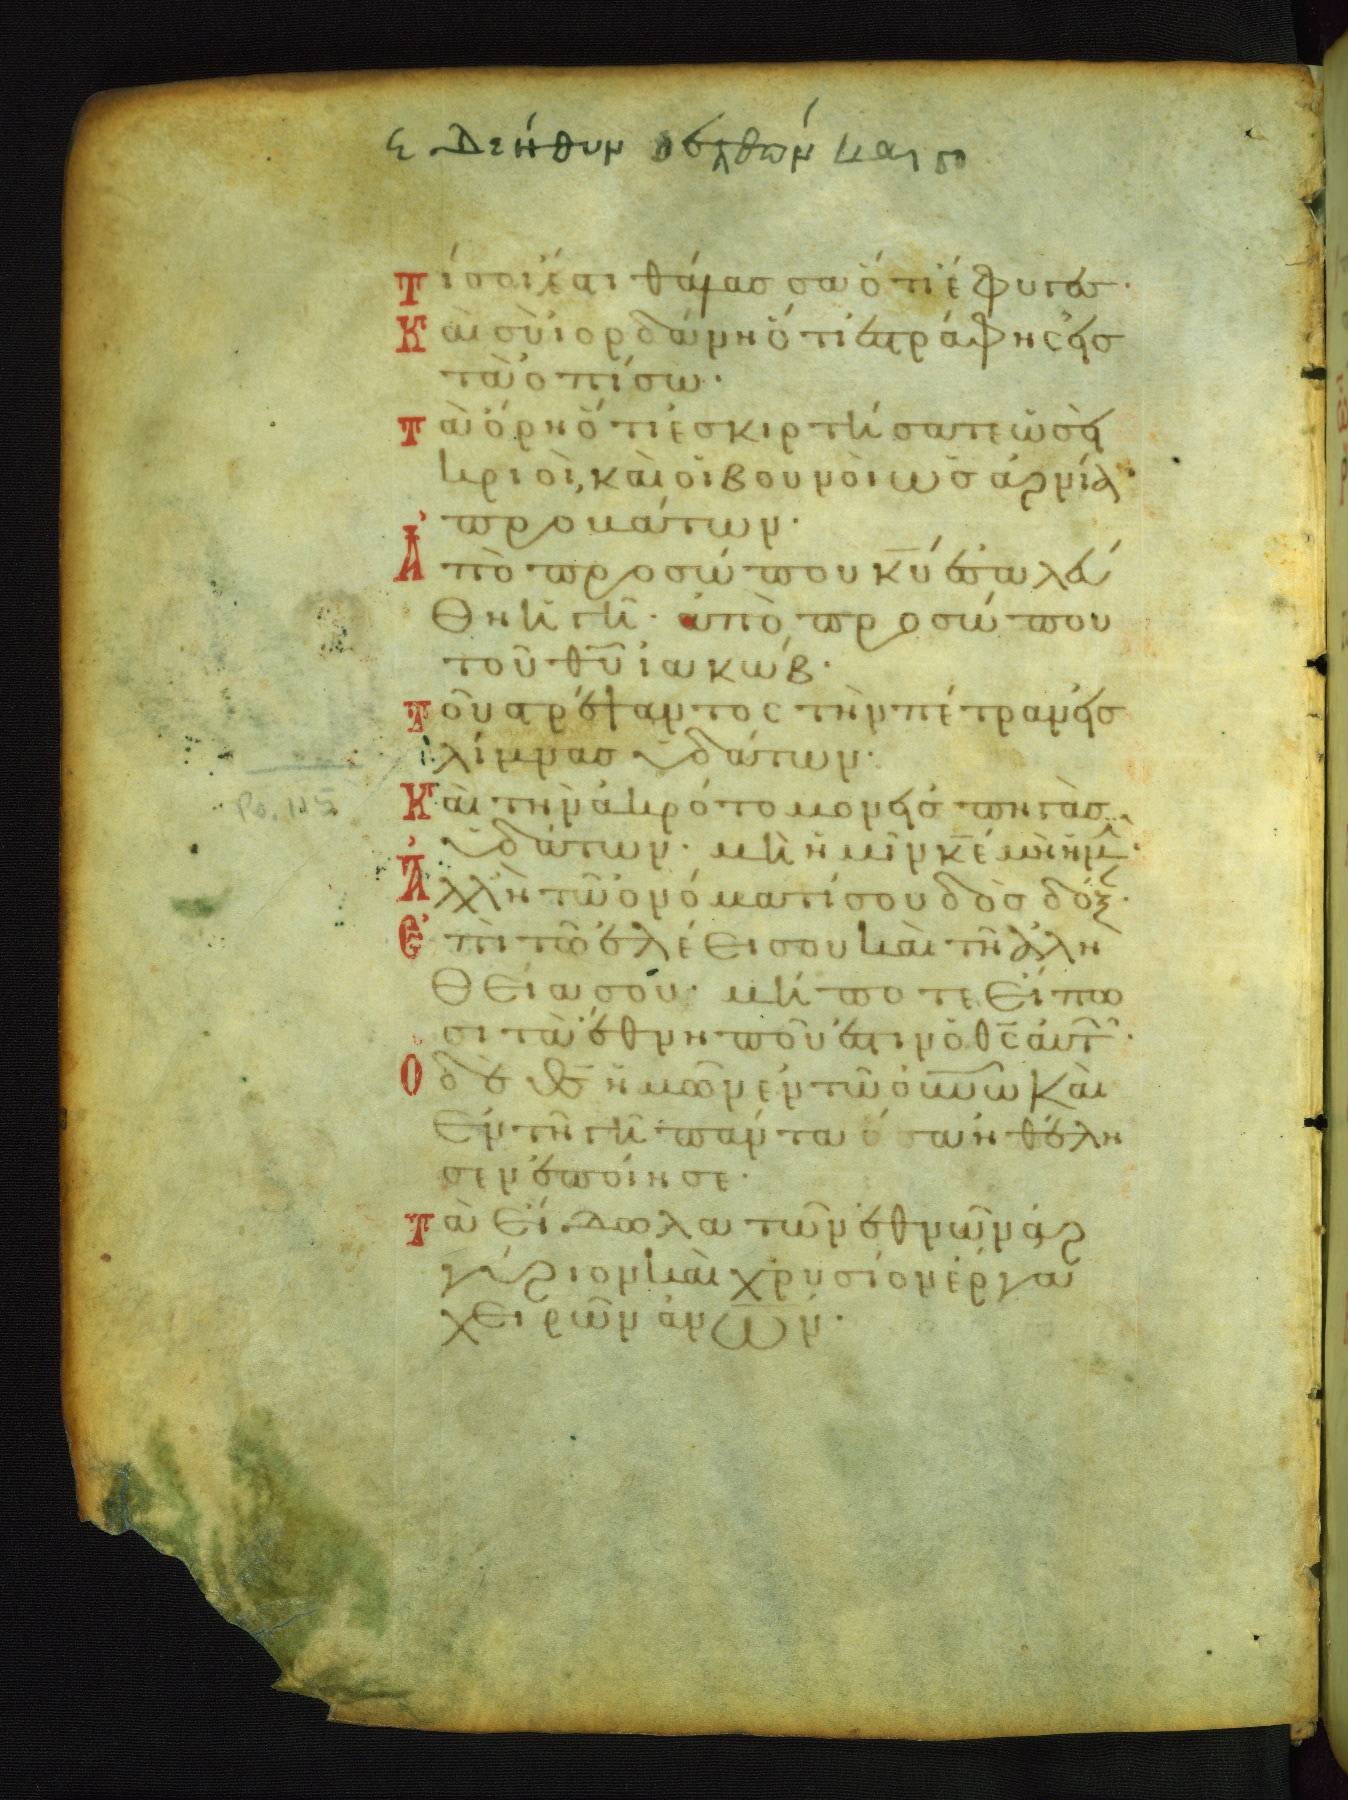 Τί σοι ἐστι θάλασσα ὅτι ἔφυγες·
Καὶ σὺ ἰορδάνη ὅτι ἐστράφης εἰς
τὰ ὀπίσω·
Τὰ ὄρη ὅτι ἐσκιρτήσατε ὡσεὶ
κριοὶ, καὶ οἱ βουνοὶ ὡς ἀρνία
προβάτων·
Ἀπὸ προσώπου κ̅υ̅ ἐσαλεύ
θη ἡ γῆ· ἀπὸ προσώπου
τοῦ θ̅υ̅ ἰακώβ·
Τοῦ στρέψαντος τὴν πέτραν εἰς
λίμνας ὑδάτων·
Καὶ τὴν ἀκρότομον εἰς πηγὰς
ὑδάτων· μὴ ἡμῖν κ̅ε̅ μὴ ἡμῖ·
Ἀλλ' ἢ τῷ ὀνόματί σου δὸς δόξ·
Ἐπὶ τῷ ἐλέει σου καὶ τῇ ἀλη
θεία σου· μή ποτε εἴπω
σι τὰ ἔθνη ποῦ ἐστιν ὁ θ̅ς̅ αὐτ·
Ὁ δὲ θ̅ς̅ ἡμῶν ἐν τῷ ο̅υ̅ν̅ω̅ καὶ
ἐν τῇ γῇ πάντα ὅσα ἠθέλη
σεν ἐποίησε·
Τὰ εἴδωλα τῶν ἐθνῶν ἀρ
γύριον καὶ χρυσίον ἔργα
χειρῶν ἀν̅ω̅ν·